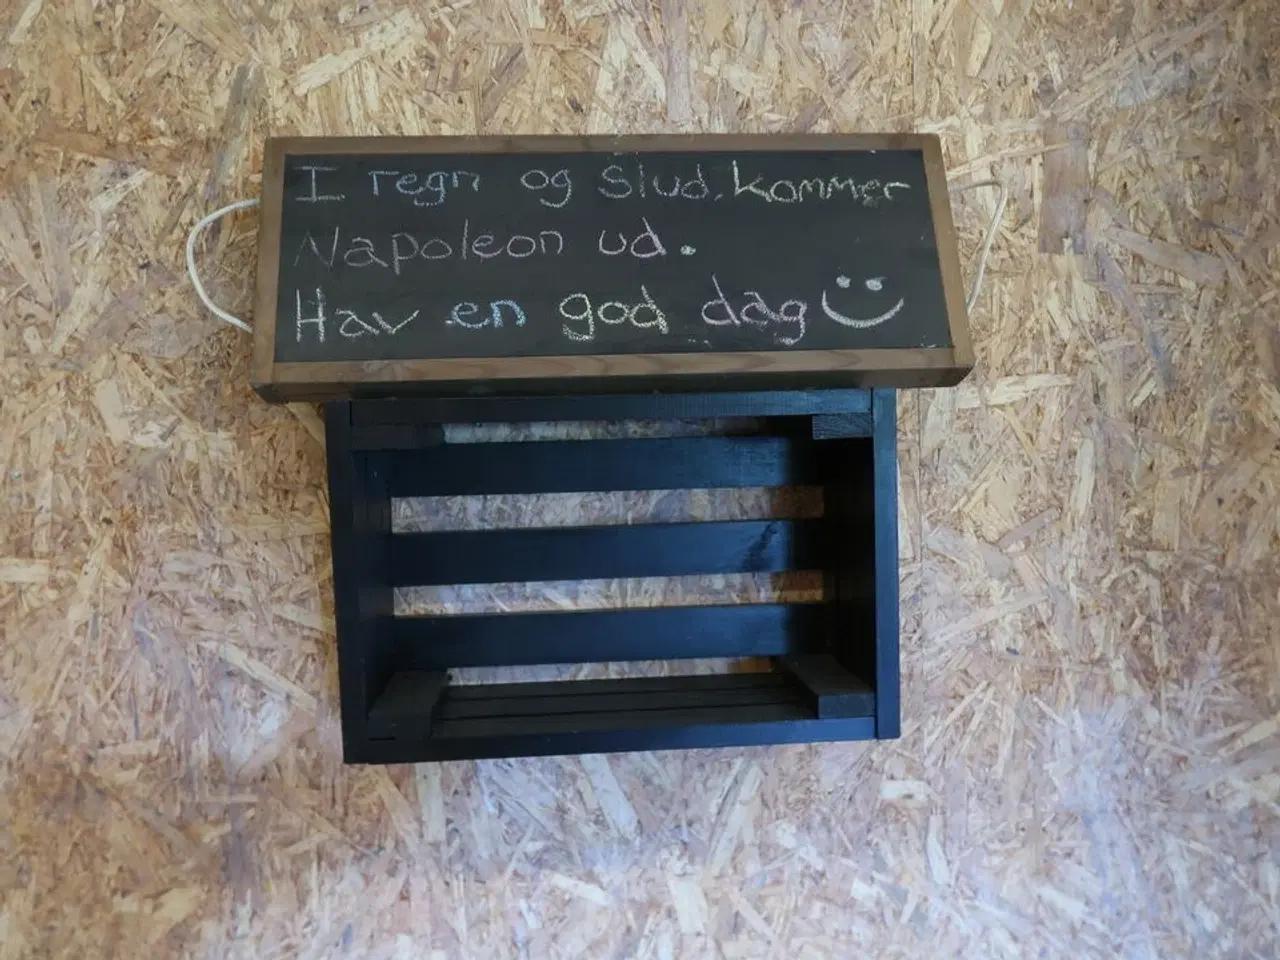 I regn og Slud, kommer
Napoleon ud.
Hav en god dag